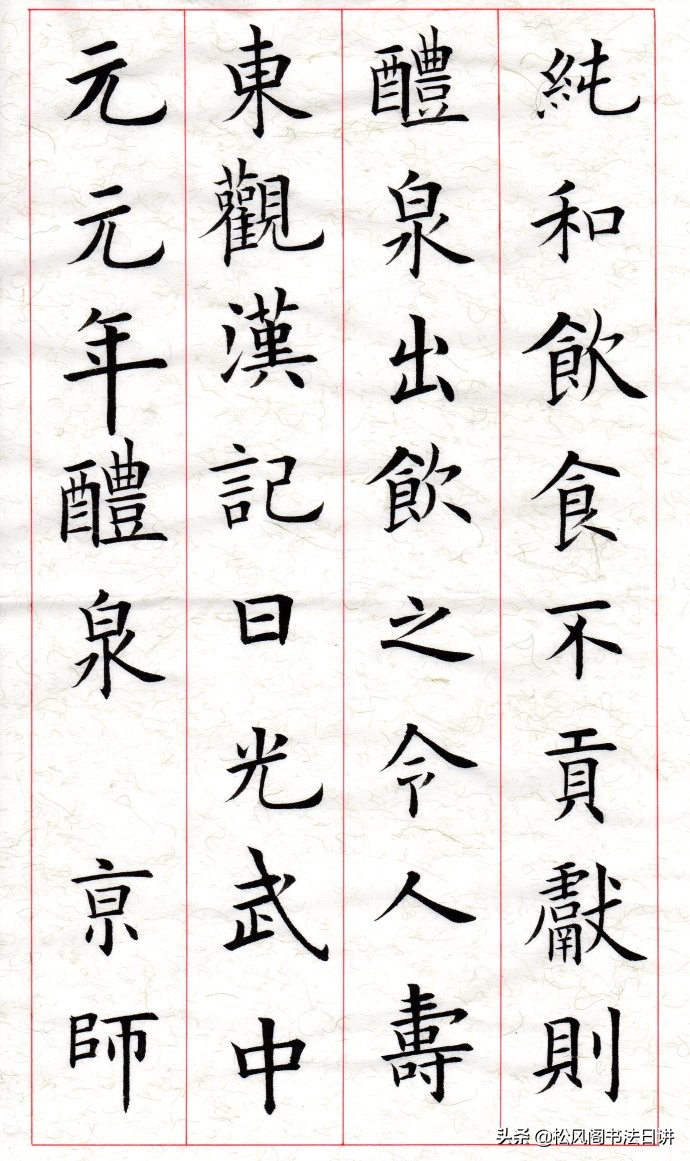 純和飲食不貢獻則
醴泉出飲之令人壽
東觀漢記曰光武中
元元年醴泉 京師
头条 @松风阁书法日讲